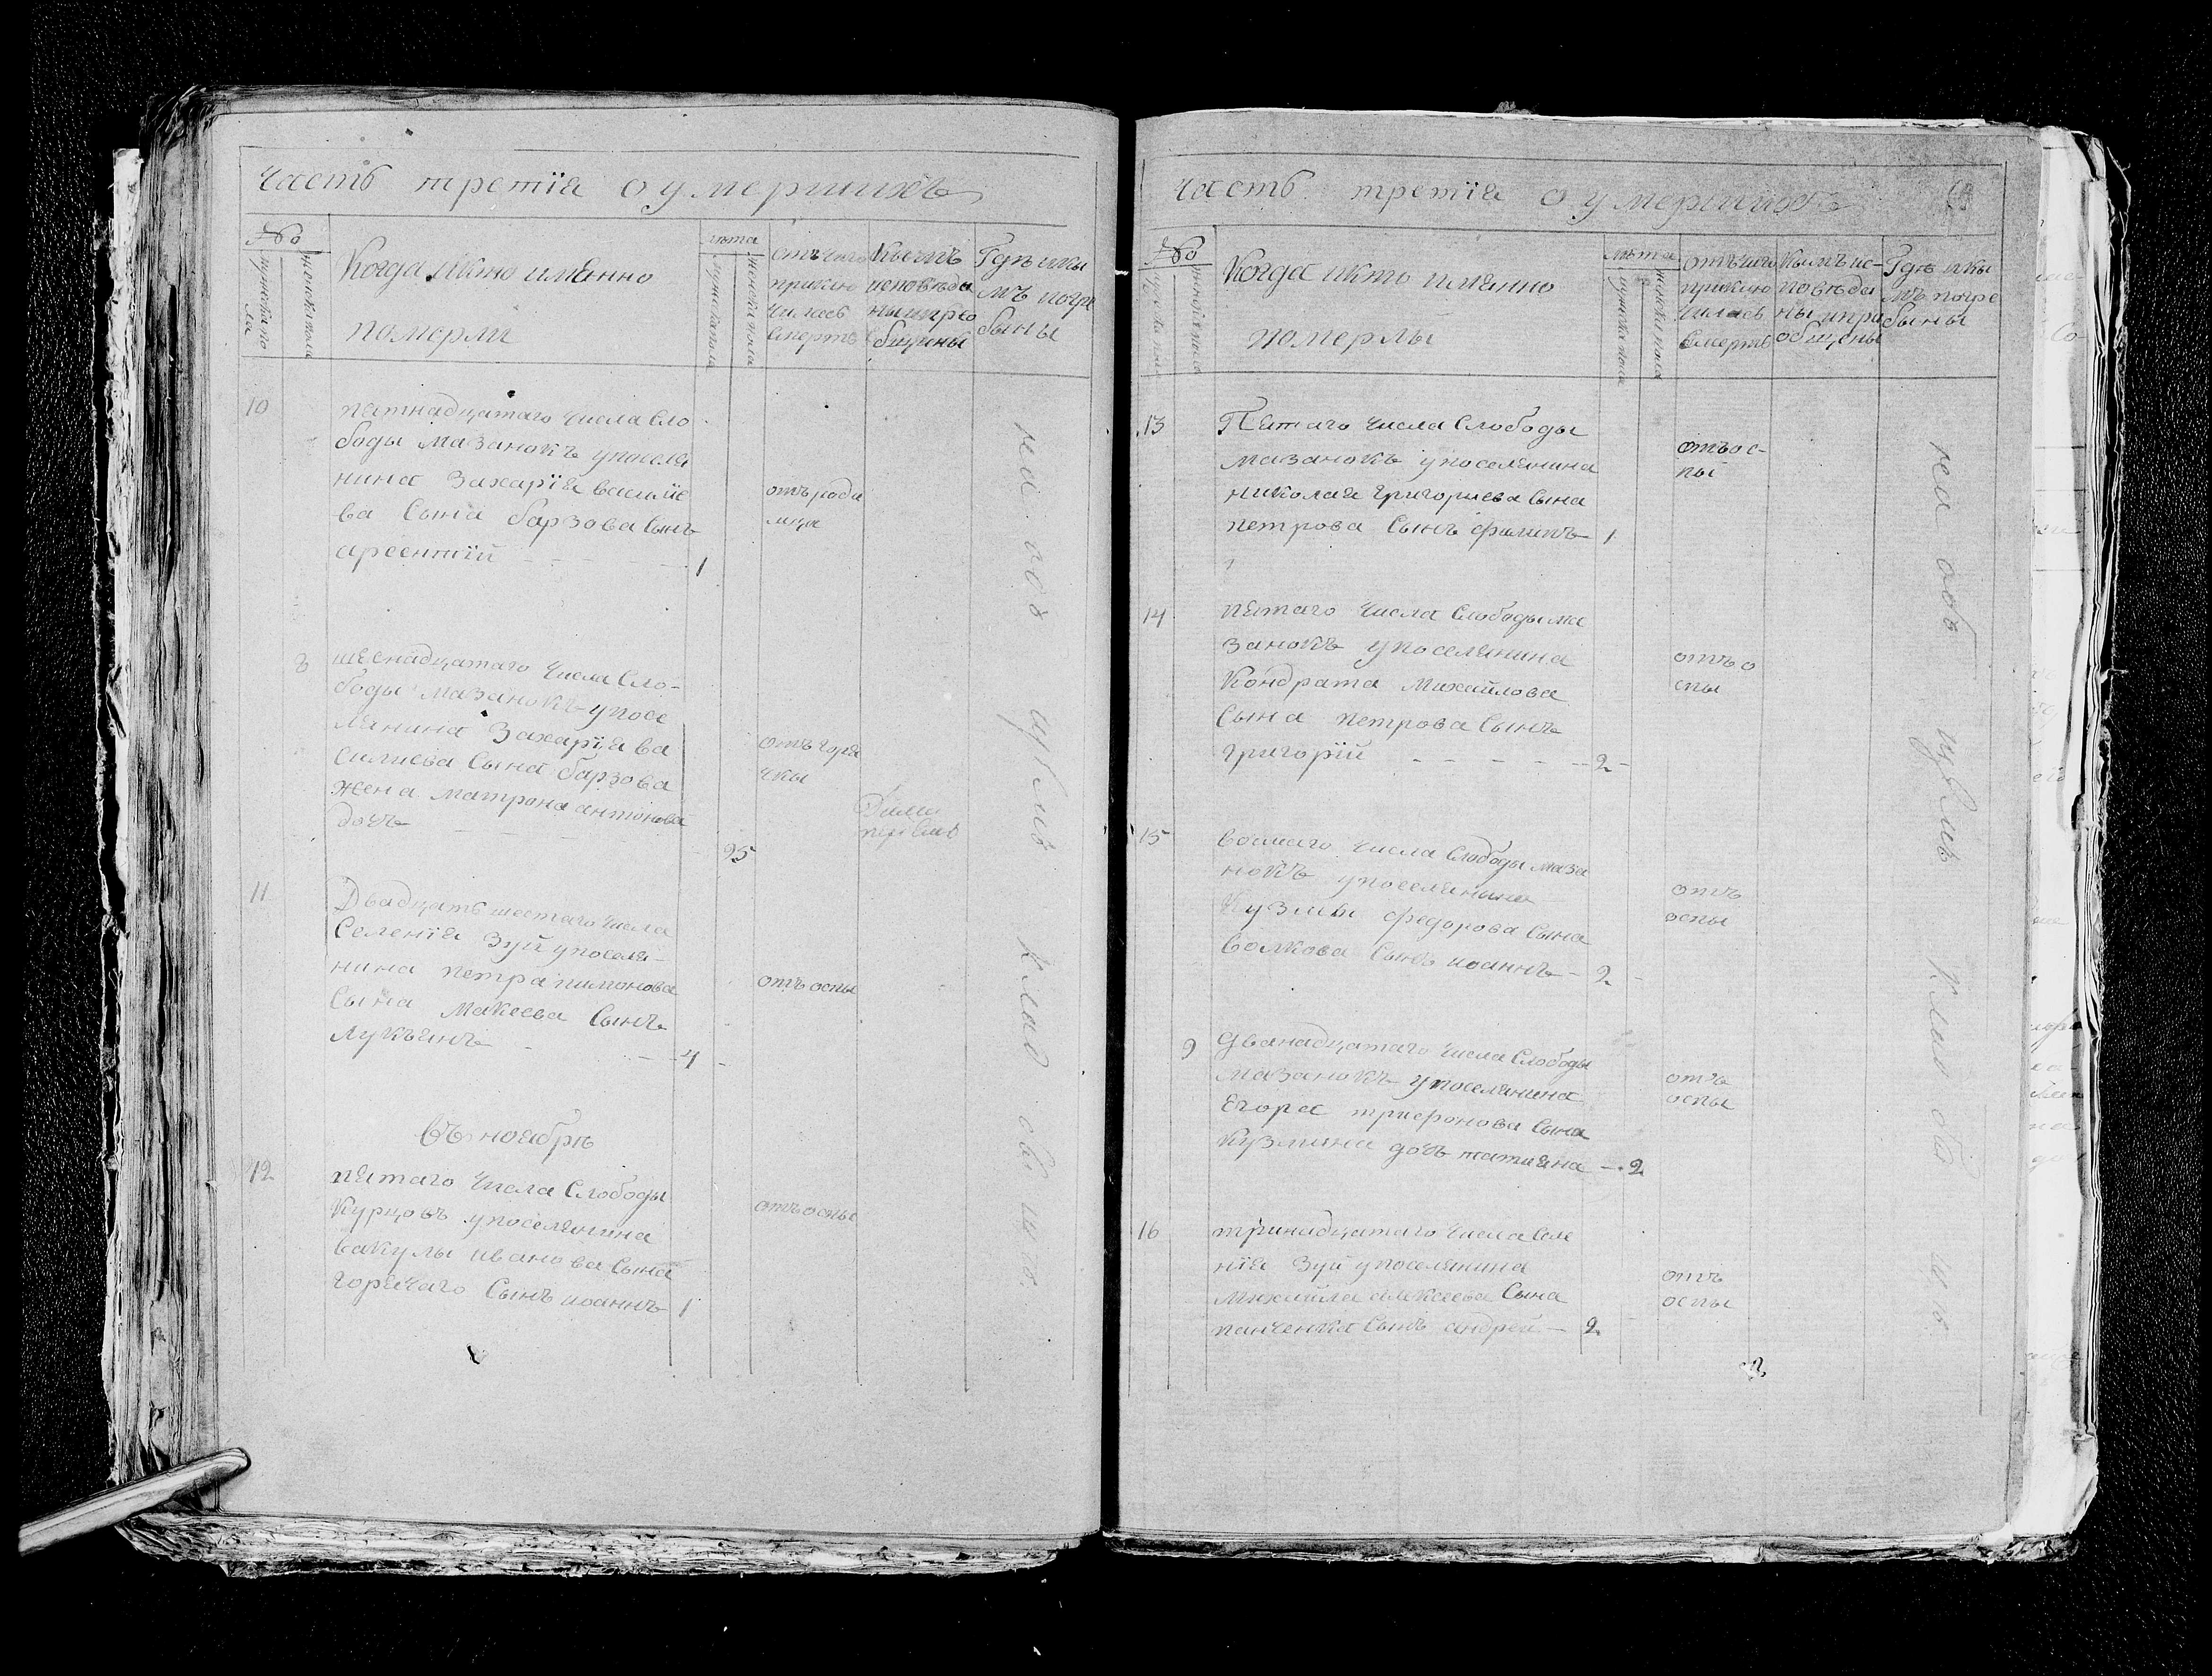 часть третїя о умершихъ
№
мужеска по
ла
женска пола
Когда и кто имянно
померли
лѣта
мужска пола
женска пола
отъ чего
приклю
чилась
смерть
Кѣмъ
исповѣда
ны и прео
бщены
Гдѣ и кы
мъ погре
быны
10
пятнадцатаго числа Сло
боды Мазанокъ упоселя
нина Захарїя василїе
ва Сына барзова Сынъ
арсентїй - - - - - 1
отъ роди
мца
8
шеснадцатаго числа Сло-
боды Мазанокъ упосе
лянина Захарїя ва
силиева Сына барзова
жена матрона антонова
дочъ - - - 95
отъ горя
чкы
11
Двадцать шестаго числа
Селенїя Зуй упоселя-
нина петра пимонова
Сына Макеева Сынъ
Лукъянъ - - 4 -
отъ оспы
въ ноябрѣ
12
пятаго числа Слободы
Курцовъ упоселянина
вакулы иванова Сына
горячаго Сынъ иоаннъ 1
отъ оспы
на об щем клад би ще
часть третїя о умершихъ
№
женска пола
Когда и кто имянно
померлы
лѣта
мужска пола
женска пола
отъ чего
приклю
чилась
смерть
Кымъ ис-
повѣда
ны и при
общены
Гдѣ и кы
мъ погре
быны
13
Пятаго числа Слободы
мазанокъ упоселянина
николая григориева Сына
петрова Сынъ филипъ 1
отъ ос-
пы
14
пятаго числа Слободы ма
занокъ упоселянина
Кондрата Михайлова
Сына петрова Сынъ
григорїй - - - - - 2 -
отъ о
спы
15
восмаго числа Слободы маза
нокъ упоселянина
Кузмы федорова Сына
волкова Сынъ иоаннъ - 2 -
отъ
оспы
9
дванадцатаго числа Слободы
мазанокъ упоселянина
Егора трифонова Сына
Кузмина дочъ татияна - 2
отъ
оспы
16
тринадцатаго числа Селе
нїя Зуй упоселянина
михайла алексеева Сына
панченка Сынъ андрей - 2
отъ
оспы
на об щем клад би ще